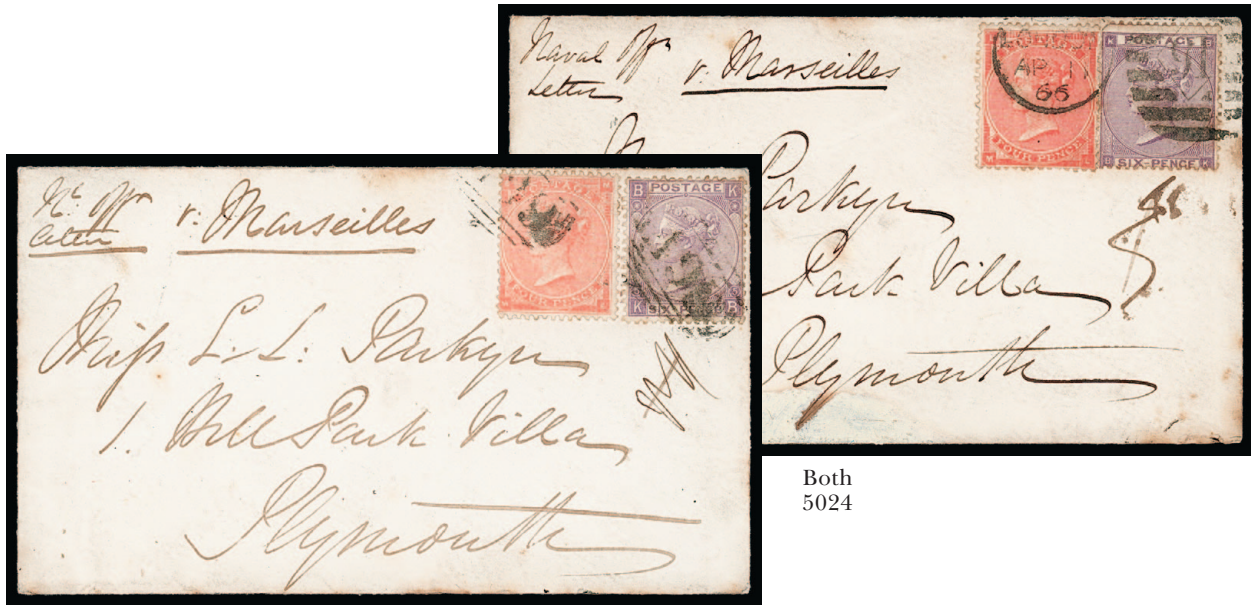 Naval Offrs
Letter
v. Marseilles
AP 11
66
M POSTAGE B
FOUR PENCE
SIX-PENCE
Parkyn
Park Villa
Plymouth
Nl. Offrs
Letter
v. Marseilles
B POSTAGE K
FOUR PENCE
K SIX-PENCE B
Miss L. L. Parkyn
1. Hill Park Villa
Plymouth
Both
5024